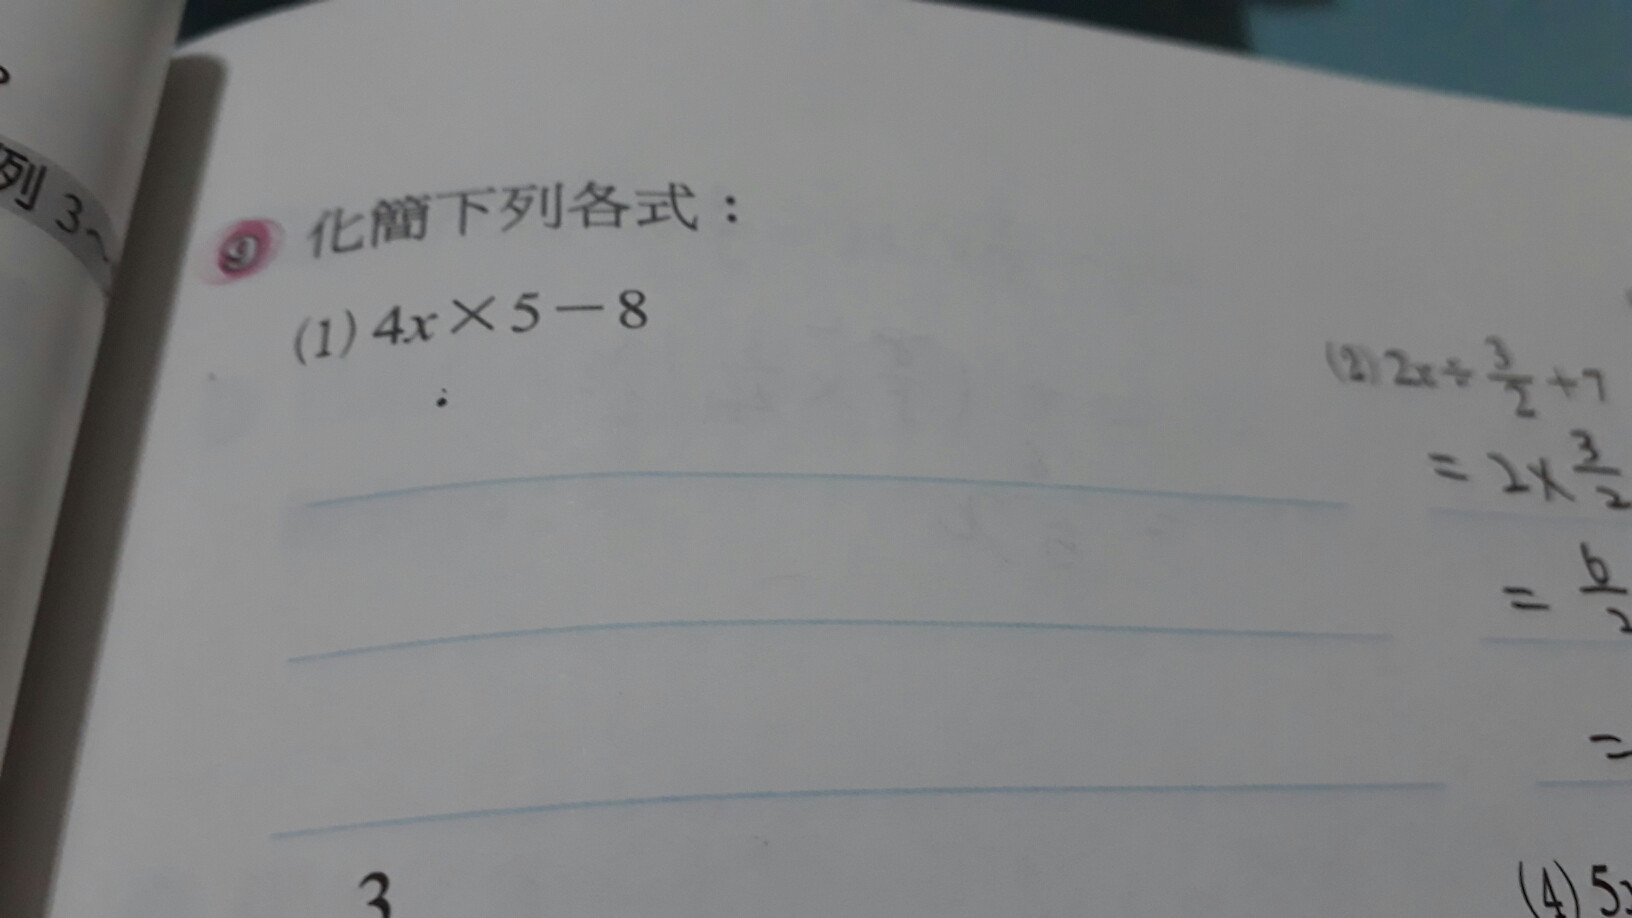 列 3~
③ 化簡下列各式：
(1) 4x×5－8
(2) 2x÷3/2+7
= 2×3/2
= 6/2
=
3
(4) 5x